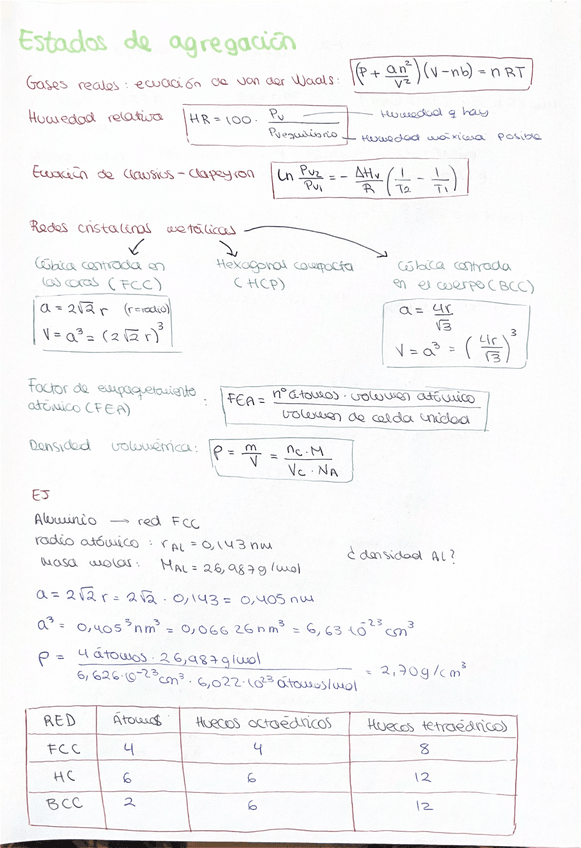 Estados de agregación
Gases reales: ecuación de van der Waals: (P + an²/V²)(V-nb) = nRT
Humedad relativa HR = 100 · Pv/Pvequilibrio
Humedad q hay
Humedad máxima posible
Ecuación de Clausius-Clapeyron Ln Pv2/Pv1 = - ΔHv/R (1/T2 - 1/T1)
Redes cristalinas metálicas
Cúbica centrada en las caras (FCC)
a = 2√2 r (r=radio)
V = a³ = (2√2 r)³
Hexagonal compacta
(HCP)
Cúbica centrada
en el cuerpo (BCC)
a = 4r/√3
V = a³ = (4r/√3)³
Factor de empaquetamiento
atómico (FEA) : FEA = nº átomos · volumen atómico / volumen de celda unidad
Densidad volumérica: ρ = m/V = nc·M / Vc·NA
EJ
Aluminio → red FCC
radio atómico: rAL = 0,143 nm
masa molar: MAL = 26,987 g/mol
¿densidad AL?
a = 2√2 r = 2√2 · 0,143 = 0,405 nm
a³ = 0,405³ nm³ = 0,06626 nm³ = 6,63·10⁻²³ cm³
ρ = 4 átomos · 26,987 g/mol / 6,626·10⁻²³ cm³ · 6,022·10²³ átomos/mol = 2,70 g/cm³
RED Átomos Huecos octaédricos Huecos tetraédricos
FCC 4 4 8
HC 6 6 12
BCC 2 6 12